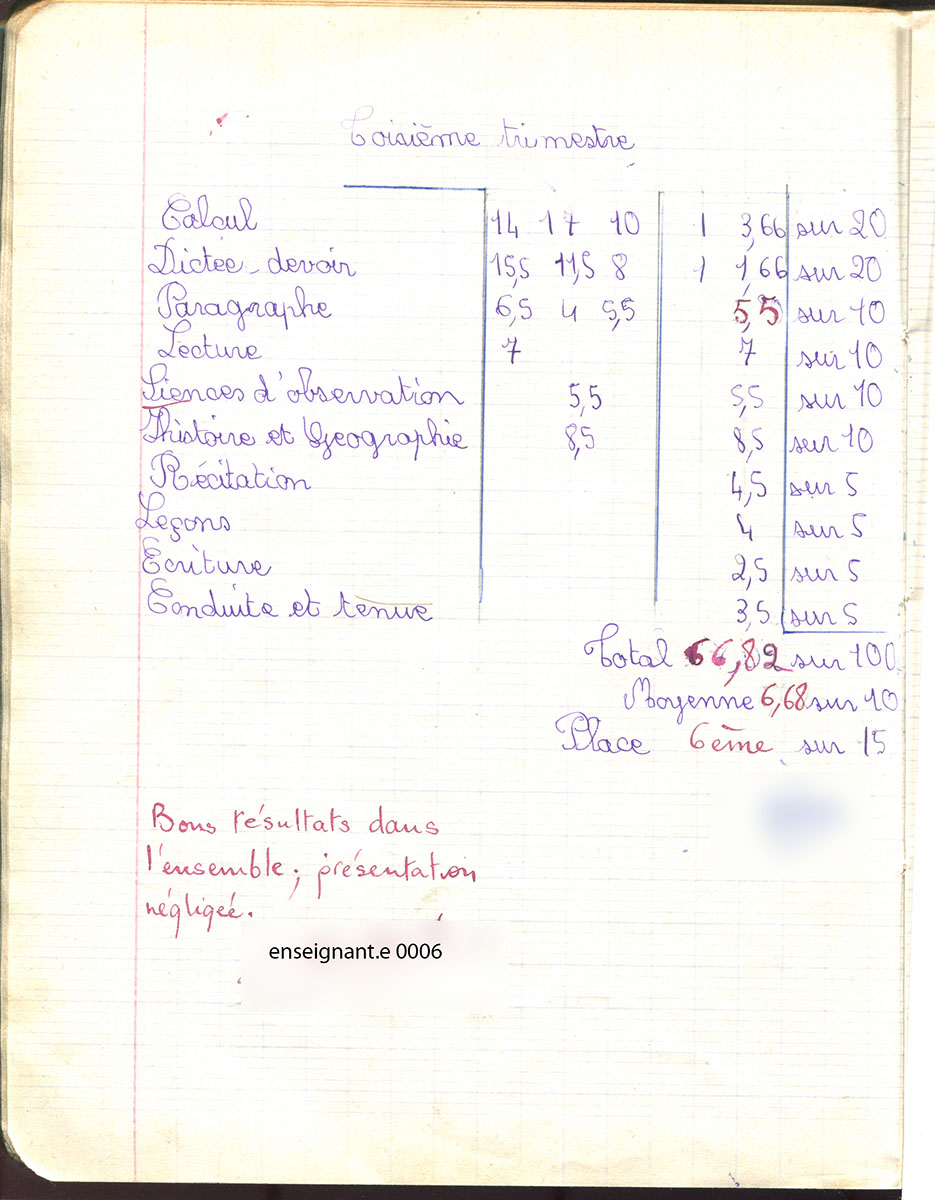 Toisième trimestre
Calcul 14 17 10 13,66 sur 20
Dictée - devoir 15,5 11,5 8 11,66 sur 20
Paragraphe 6,5 4 5,5 5,5 sur 10
Lecture 7 7 sur 10
Siences d'observation 5,5 5,5 sur 10
Histoire et Geographie 8,5 8,5 sur 10
Récitation 4,5 sur 5
Leçons 4 sur 5
Ecriture 2,5 sur 5
Conduite et tenue 3,5 sur 5
Total 66,82 sur 100
Moyenne 6,68 sur 10
Place 6ème sur 15
Bons résultats dans
l'ensemble ; présentation
négligée.
enseignant.e 0006